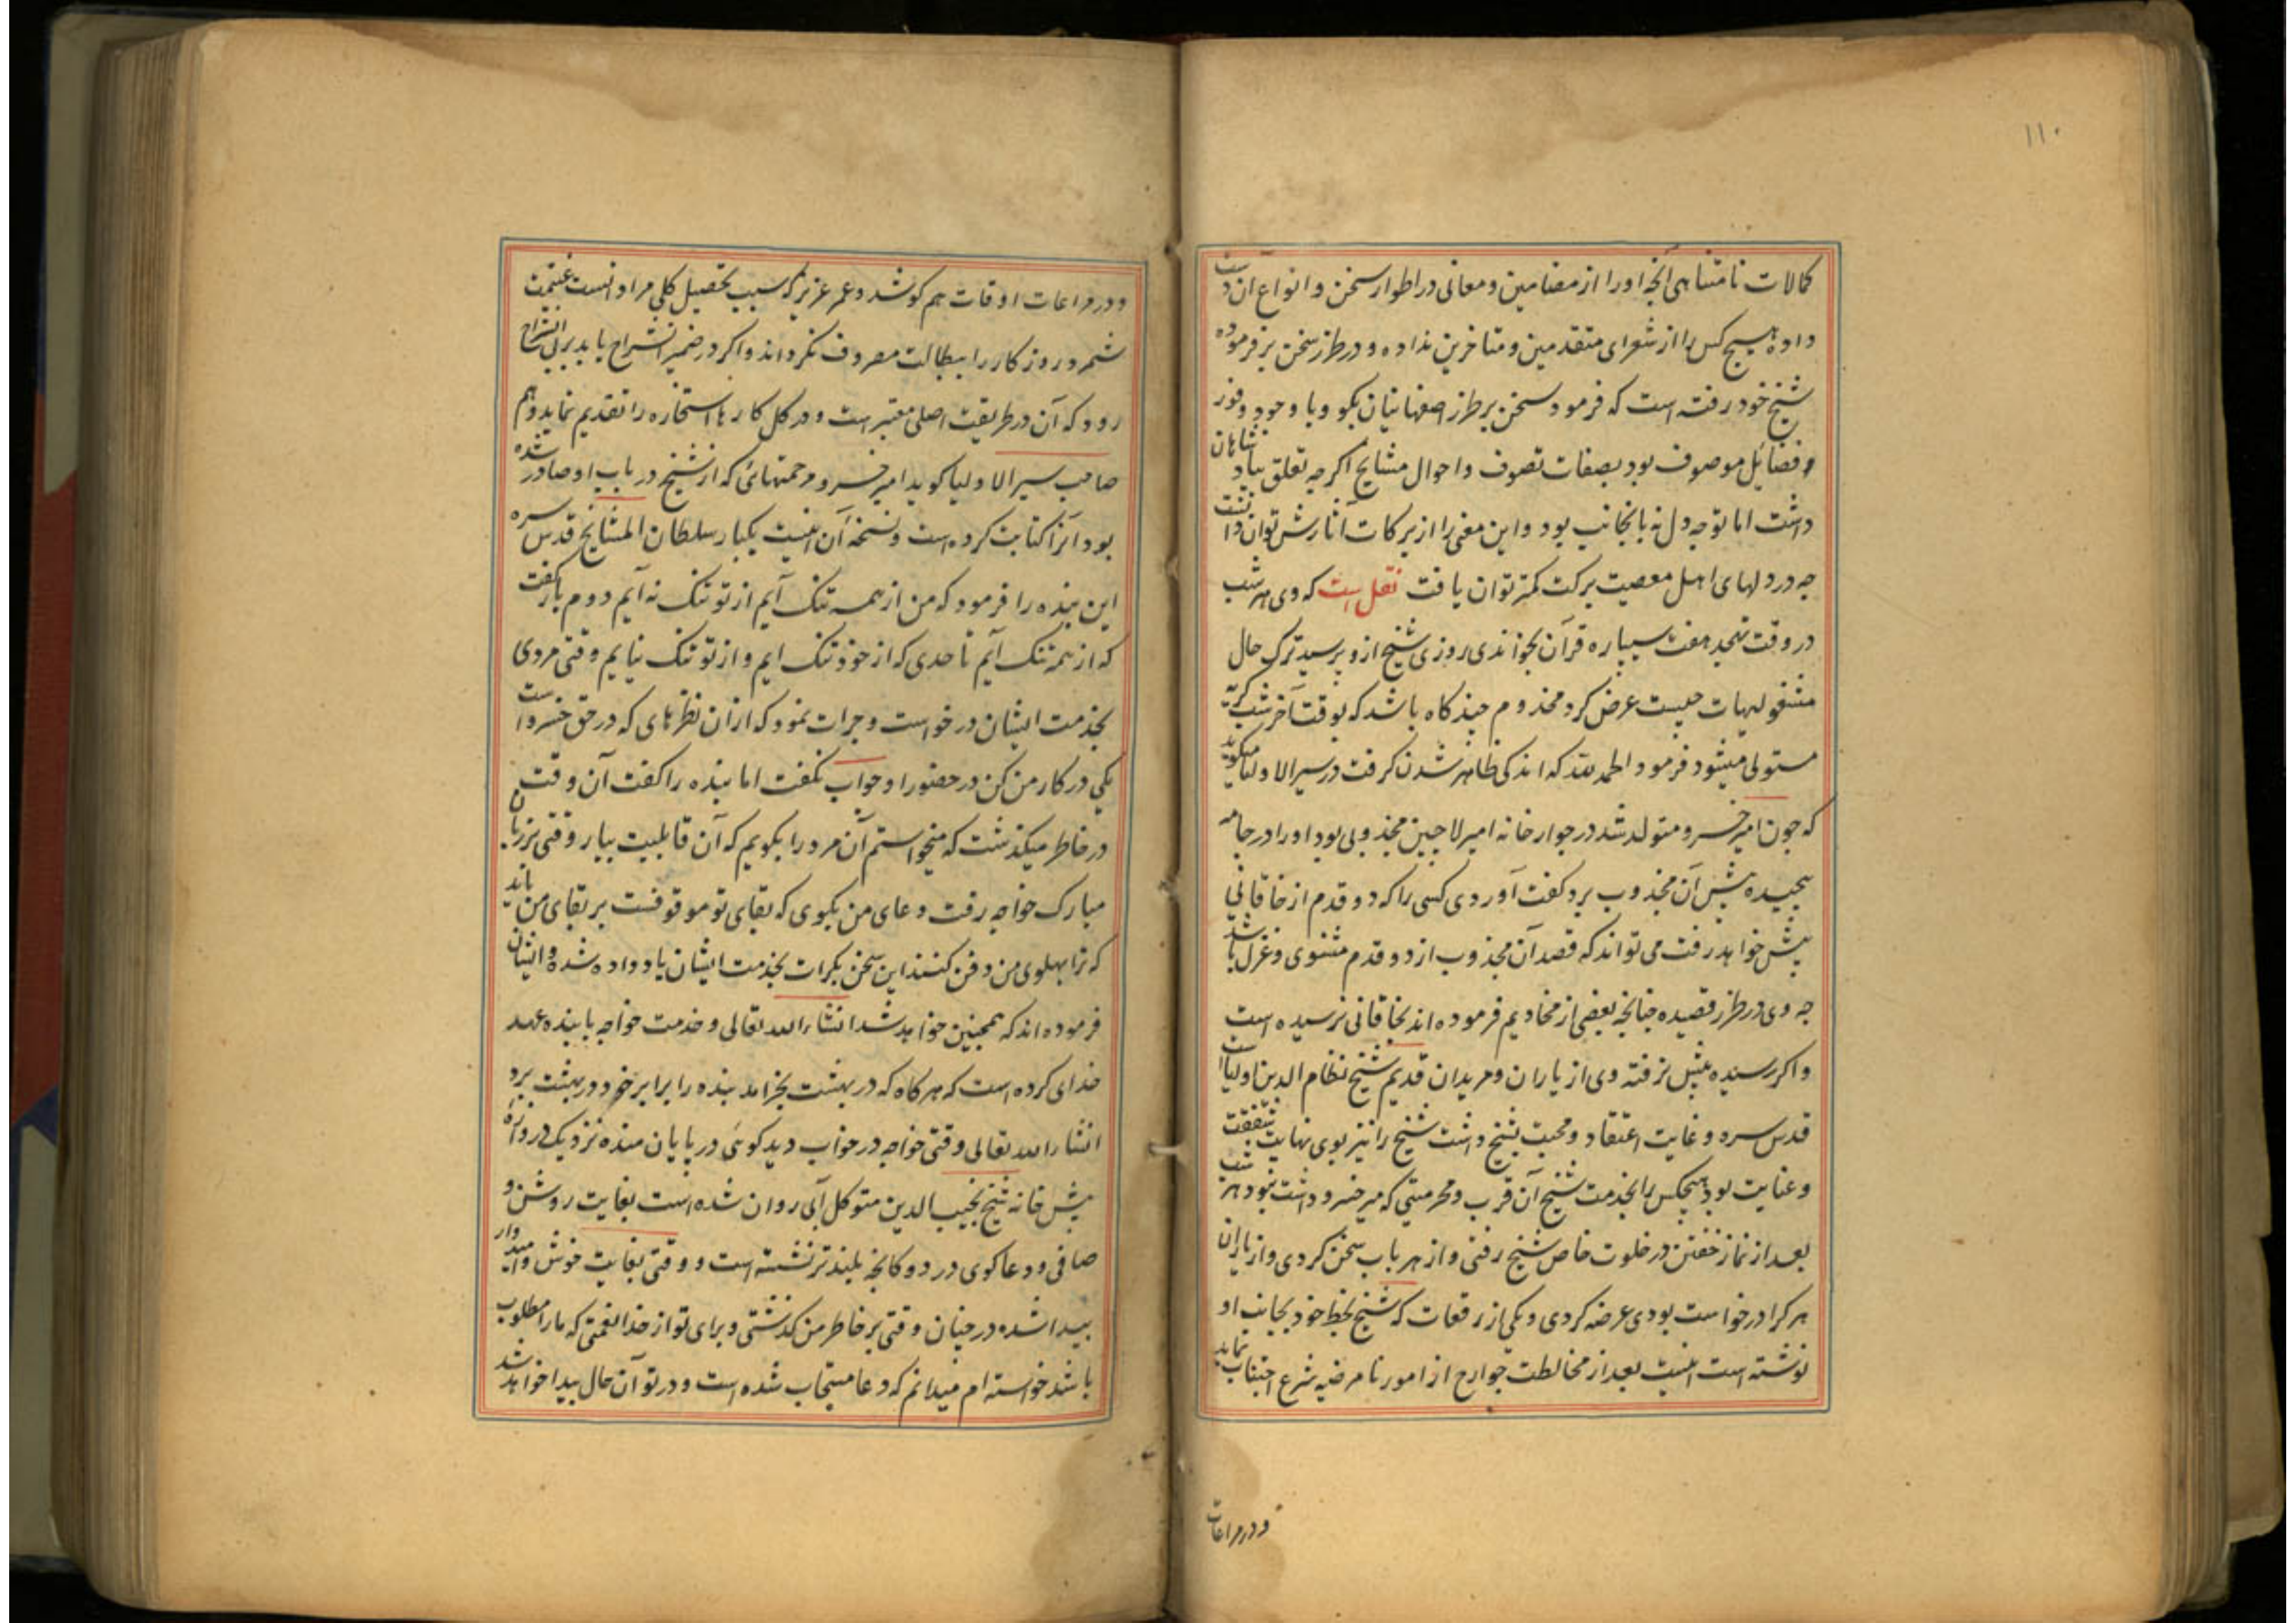 ۱۱۰
کمالات نامتناهی آنچه او را از مضامین و معانی در اطوار سخن و انواع آن دست
داده هیچ کس را از شعرای متقدمین و متاخرین نداده و در طرز سخن بر فرموده
شیخ خود رفته است که فرمود سخن بر طرز اصفهانیان بکو و با وجود وفور
فضایل موصوف بود بصفات تصوف و احوال مشایخ اکرچه تعلق بپادشاهان
داشت اما توجه دل نه بانجانب بود و این معنی را از برکات آثارش توان دانست
چه در دلهای اهل معصیت برکت کمتر توان یافت نقل است که وی هر شب
در وقت تهجد هفت سیپاره قرآن بخواندی روزی شیخ ازو پرسید ترک حال
مشغولیهات چیست عرض کرد مخدوم چند کاه باشد که بوقت آخر شب کریه
مستولی میشود فرمود الحمد لله که اندکی ظاهر شدن کرفت در سیر الاولیا میکوید
که چون امیر خسرو متولد شد در جوار خانه امیر لاچین مجذوبی بود او را در جامه
پیچیده پیش آن مجذوب برد کفت آوردی کسی را که دو قدم از خاقانی
پیش خواهد رفت می تواند که قصد آن مجذوب از دو قدم مثنوی و غزل باشد
چه وی در طرز قصیده چنانچه بعضی از مخادیم فرموده اند بخاقانی نرسیده است
و اکر رسیده پیش نرفته وی از یاران و مریدان قدیم شیخ نظام الدین اولیا است
قدس سره و غایت اعتقاد و محبت بشیخ داشت شیخ را نیز بوی نهایت شفقت
و عنایت بود هیچکس را بخدمت شیخ آن قرب و محرمیتی که میر خسرو داشت نبود هر شب
بعد از نماز خفتن در خلوت خاص شیخ رفتی و از هر باب سخن کردی و از یاران
هر کرا درخواست بودی عرضه کردی و یکی از رقعات که شیخ بخط خود بجانب او
نوشته است اینست بعد از مخالطت جوارح از امور نامرضیه شرع اجتناب نماید
و در مراعات
و در مراعات اوقات هم کوشد و عمر عزیز که سبب تحصیل کلی مراد انست غنیمت
شمرد و روزکار را ببطالت مصروف نکرداند و اکر در ضمیر انشراح یابد بر پی انشراح
رود که آن در طریقت اصلی معتبر است و در کل کارها استخاره را تقدیم نماید و هم
صاحب سیر الاولیا کوید امیر خسرو مرحمتهائی که از شیخ در باب او صادر شده
بود آنرا کتابت کرده است و نسخه آن اینست یکبار سلطان المشایخ قدس سره
این بنده را فرمود که من از همه تنک آیم از تو تنک نه آیم دوم بار کفت
که از همه تنک آیم تا حدی که از خود تنک ایم و از تو تنک نیایم وقتی مردی
بخدمت ایشان درخواست و جرات نمود که از ان نظرهای که در حق خسرو است
یکی در کار من کن در حضور او جواب نکفت اما بنده را کفت آن وقت
در خاطر میکذشت که میخواستم آن مرد را بکویم که آن قابلیت بیار وقتی بر زبان
مبارک خواجه رفت دعای من بکوی که بقای تو موقوفست بر بقای من باید
که ترا پهلوی من دفن کنند این سخن بکرات بخدمت ایشان یاد داده شده و ایشان
فرموده اند که همچنین خواهد شد انشاء الله تعالی و خدمت خواجه با بنده عهد
خدای کرده است که هر کاه که در بهشت بخرامد بنده را برابر خود در بهشت برد
انشاء الله تعالی وقتی خواجه در خواب دید کوئی در پایان منده نزدیک دروازه
پیش خانه شیخ نجیب الدین متوکل آبی روان شده است بغایت روشن و
صافی و دعا کوی در دوکانچه بلندتر نشسته است و وقتی بغایت خوش و امیدوار
پیدا شده در چنان وقتی بر خاطر من کذشتی و برای تو از خدا نعمتی که ما را مطلوب
باشد خواسته ام میدانم که دعا مستجاب شده است و در تو آن حال پیدا خواهد شد